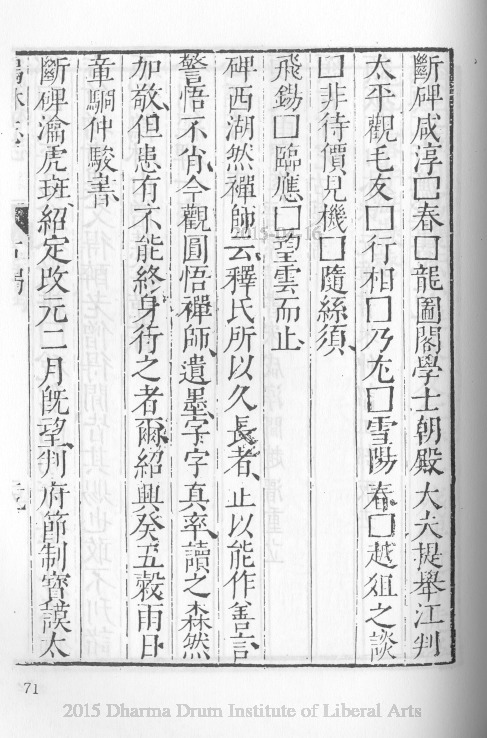 斷碑咸淳□春□龍圖閣學士朝殿大夫提舉江判
太平觀毛友□行相□乃尤□雪陽春□越俎之談
□非待價見機□隨絲須
飛錫□臨應□望雲而止
碑西湖然禪師云釋氏所以久長者止以能作善言
警悟不肖今觀圓悟禪師遺墨字字真率讀之森然
加敬但患有不能終身行之者爾紹興癸五穀雨日
章駒仲駿書
斷碑瀹虎斑紹定改元二月既望判府節制寶謨太
71
2015 Dharma Drum Institute of Liberal Arts